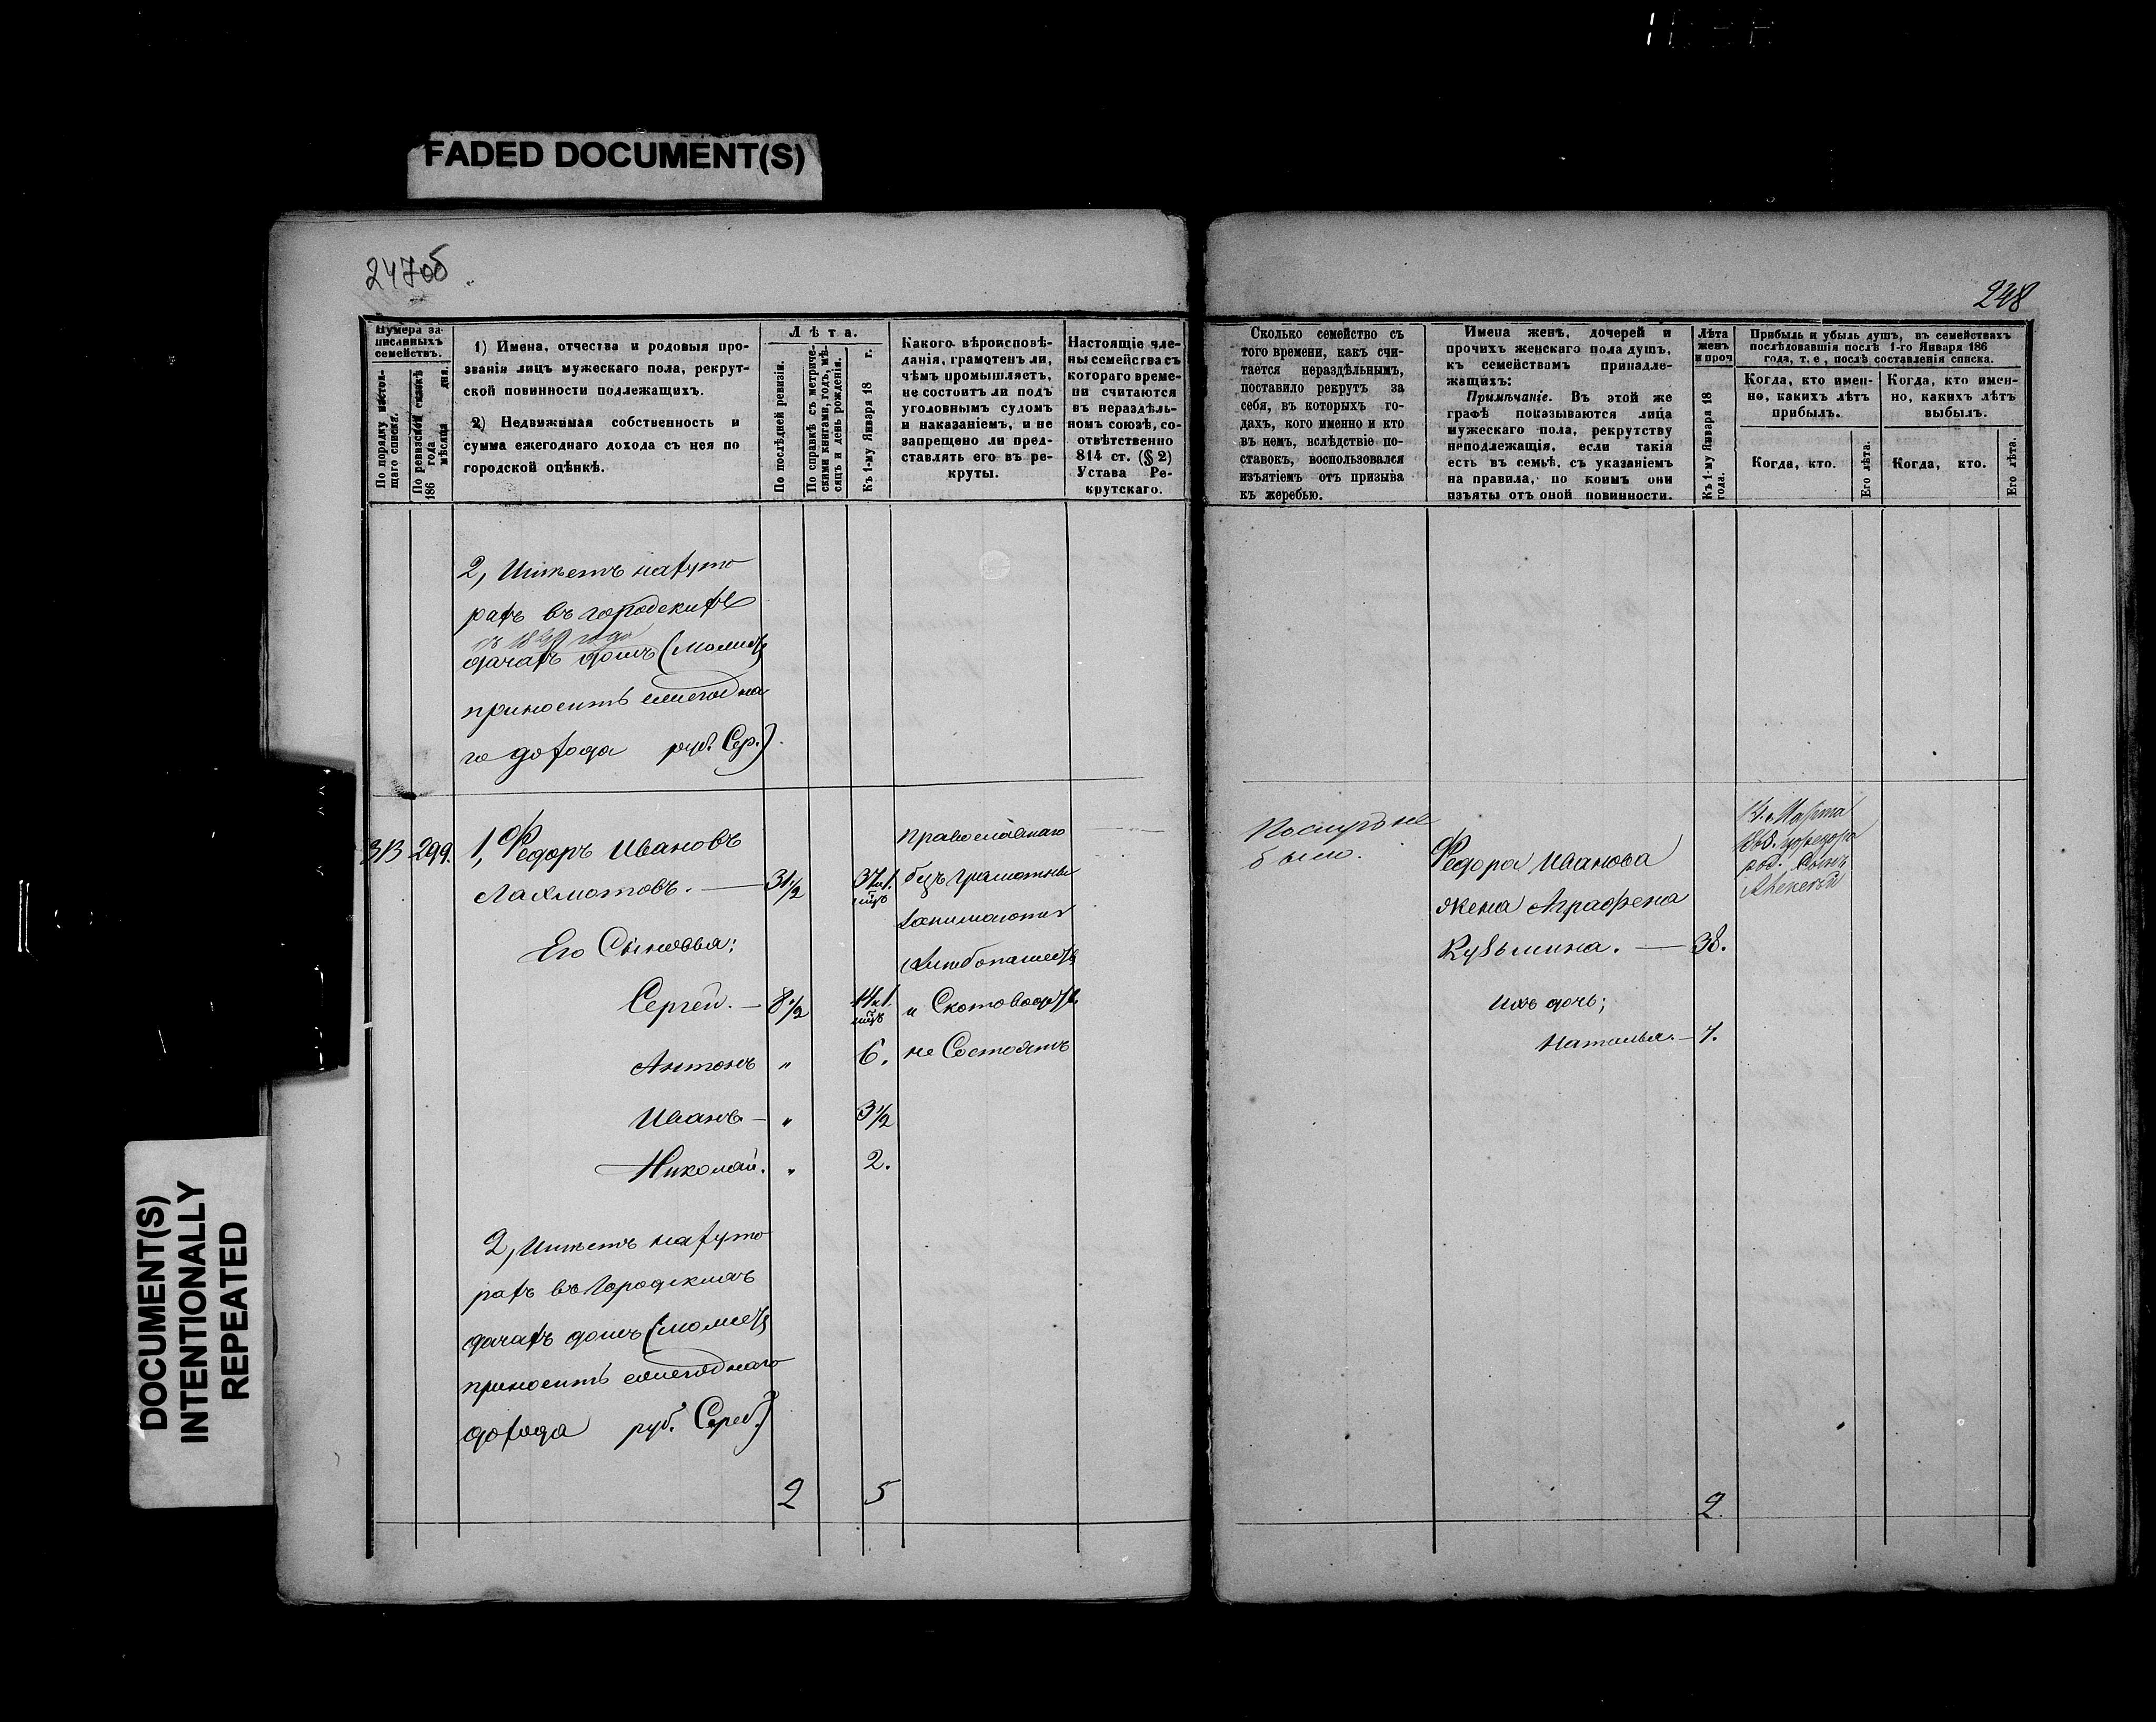 FADED DOCUMENT(S)
247об
248
Нумера за-
писанныхъ
семействъ.
По порядку настоя-
щаго списка.
По ревизской сказкѣ
186 года
мѣсяца дня.
1) Имена, отчества и родовыя про-
званія лицъ мужескаго пола, рекрут-
ской повинности подлежащихъ.
2) Недвижимая собственность и
сумма ежегоднаго дохода съ нея по
городской оцѣнкѣ.
Лѣта.
По послѣдней ревизіи.
По справкѣ съ метриче-
скими книгами, годъ, мѣ-
сяцъ и день рожденія.
Къ 1-му Января 18 г.
Какого вѣроисповѣ-
данія, грамотенъ ли,
чѣмъ промышляетъ,
не состоитъ ли подъ
уголовнымъ судомъ
и наказаніемъ, и не
запрещено ли пред-
ставлять его въ ре-
круты.
Настоящіе чле-
ны семейства съ
котораго време-
ни считаются
въ нераздѣль-
номъ союзѣ, со-
отвѣтственно
814 ст. (§ 2)
Устава Ре-
крутскаго.
Сколько семейство съ
того времени, какъ счи-
тается нераздѣльнымъ,
поставило рекрутъ за
себя, въ которыхъ го-
дахъ, кого именно и кто
въ немъ, вслѣдствіе по-
ставокъ, воспользовался
изъятіемъ отъ призыва
къ жеребью.
Имена женъ, дочерей и
прочихъ женскаго пола душъ,
къ семействамъ принадле-
жащихъ:
Примѣчаніе. Въ этой же
графѣ показываются лица
мужескаго пола, рекрутству
неподлежащія, если такія
есть въ семьѣ, съ указаніемъ
на правила, по коимъ они
изъяты отъ оной повинности.
Лѣта
женъ
и проч
Къ 1-му Января 18
года.
Прибыль и убыль душъ, въ семействахъ
послѣдовавшія послѣ 1-го Января 186
года, т. е., послѣ составленія списка.
Когда, кто имен-
но, какихъ лѣтъ
прибылъ.
Когда, кто имен-
но, какихъ лѣтъ
выбылъ.
Когда, кто.
Его лѣта.
Когда, кто.
Его лѣта.
2, Имѣетъ на хуто
рахъ въ городскихъ
года
дачахъ домъ (
приноситъ ежегодна
го дохода руб. Сер.)
313 299. 1, Федоръ Ивановъ
Лахмотовъ. — 31½ 37 и 1. мѣц
Его Сыновья:
Сергей. — 8½ 14 и 1. мѣц
Антонъ " 6.
Иванъ — " 3½
Николай. " 2.
2, Имѣетъ на хуто
рахъ въ городскихъ
дачахъ домъ (
приноситъ ежегоднаго
дохода руб. Сереб.)
2 5
православнаго
безъграмотны
занимаются
хлебопашест
и Скотоводст
не Состоятъ
не
было.
Федора Иванова
жена Аграфена
Кузьмина. — 38.
Ихъ дочь;
Наталья. — 7.
2
Марта
у Федора
род. Сынъ
Алексей
DOCUMENT(S)
INTENTIONALLY
REPEATED